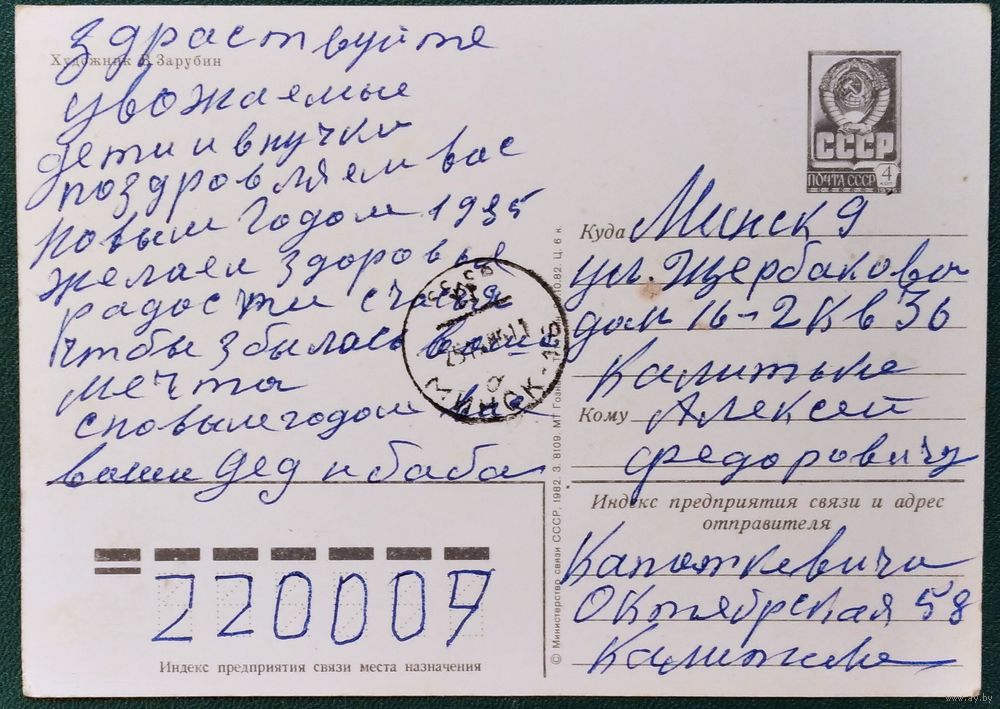 Художник В. Зарубин
здраствуйте
уважаемые
дети и внучки
поздровляем вас
новым Годом 1985
желаем здоровья
радости счастья
чтбы збылась ваша
мечта
сновым годом
ваши Дед и баба
СССР
ПОЧТА СССР 4
1976
Куда Минск 9
ул. Щербакова
дом 16-2 кв 36
Кому Алексей
Федоровичу
Индекс предприятия связи и адрес
отправителя
Октябрьская 58
220009
Индекс предприятия связи места назначения
© Министерство связи СССР, 1982. З. 8109. МТ Гознака. Ц. 6 к.
МИНСК
www.ay.by